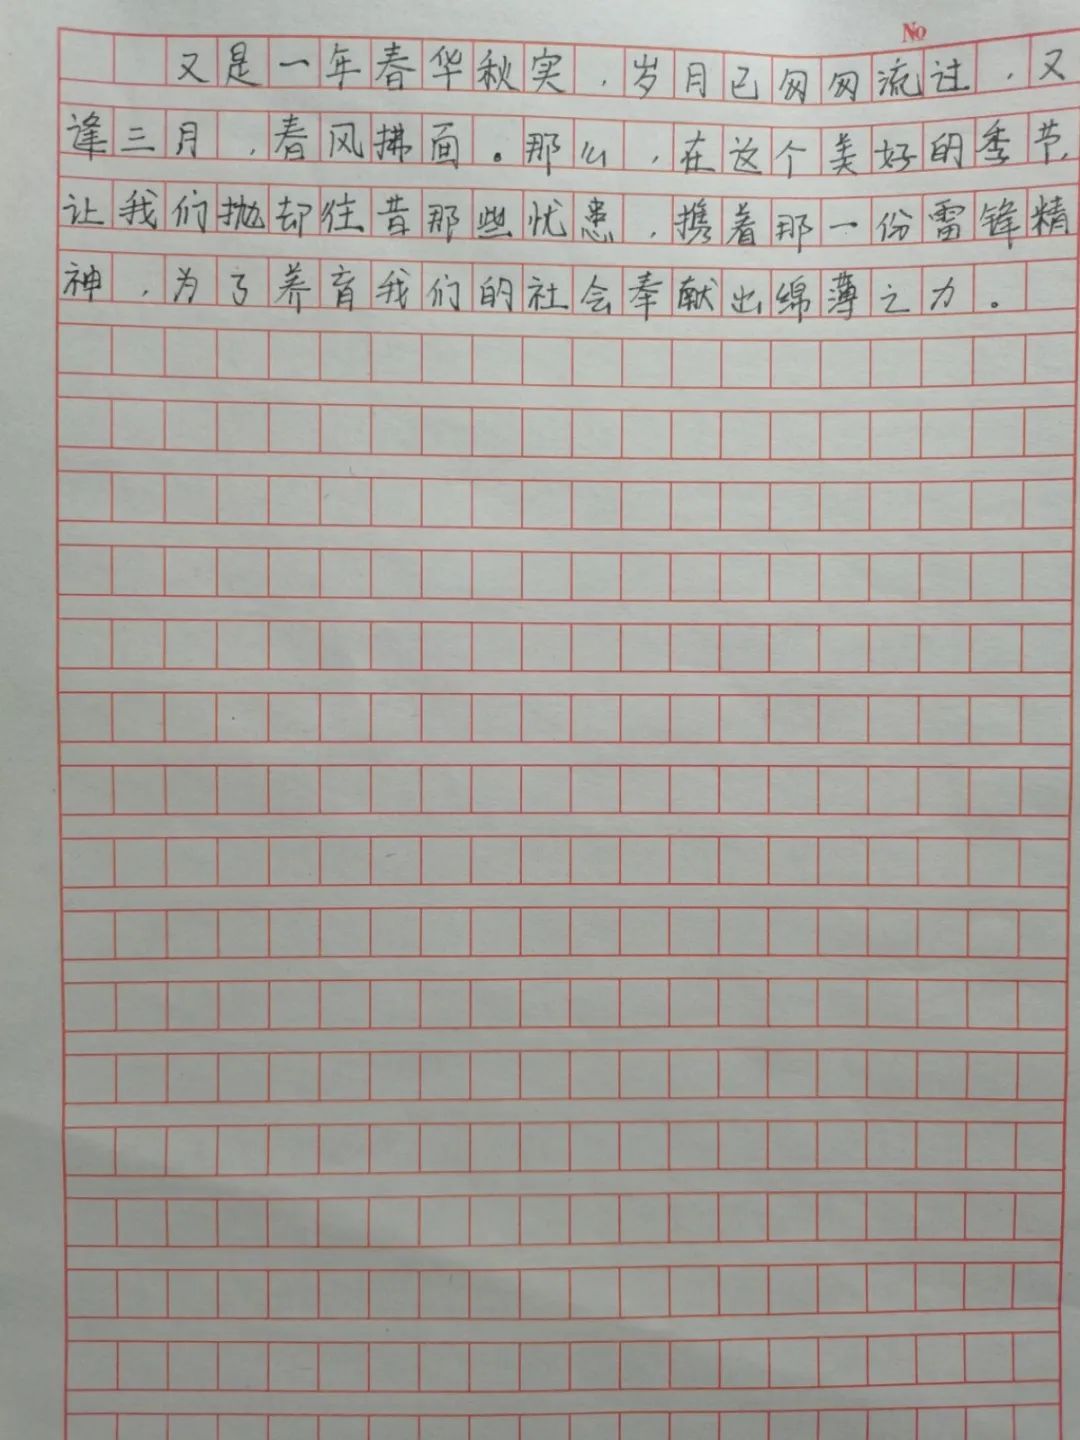 No
又是一年春华秋实,岁月已匆匆流过,又
逢三月,春风拂面。那么,在这个美好的季节,
让我们抛却往昔那些忧患,携着那一份雷锋精
神,为了养育我们的社会奉献出绵薄之力。